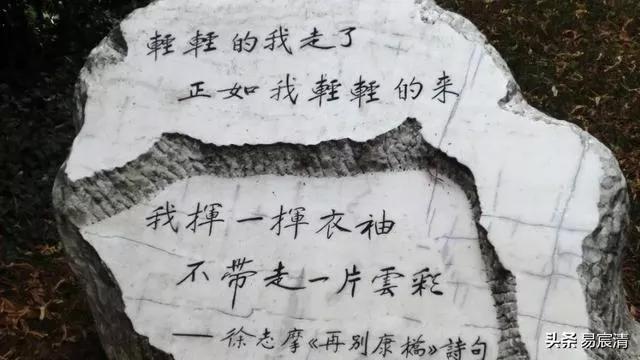 輕輕的我走了
正如我輕輕的来
我揮一揮衣袖
不带走一片雲彩
——徐志摩《再别康橋》詩句
头条@易宸清